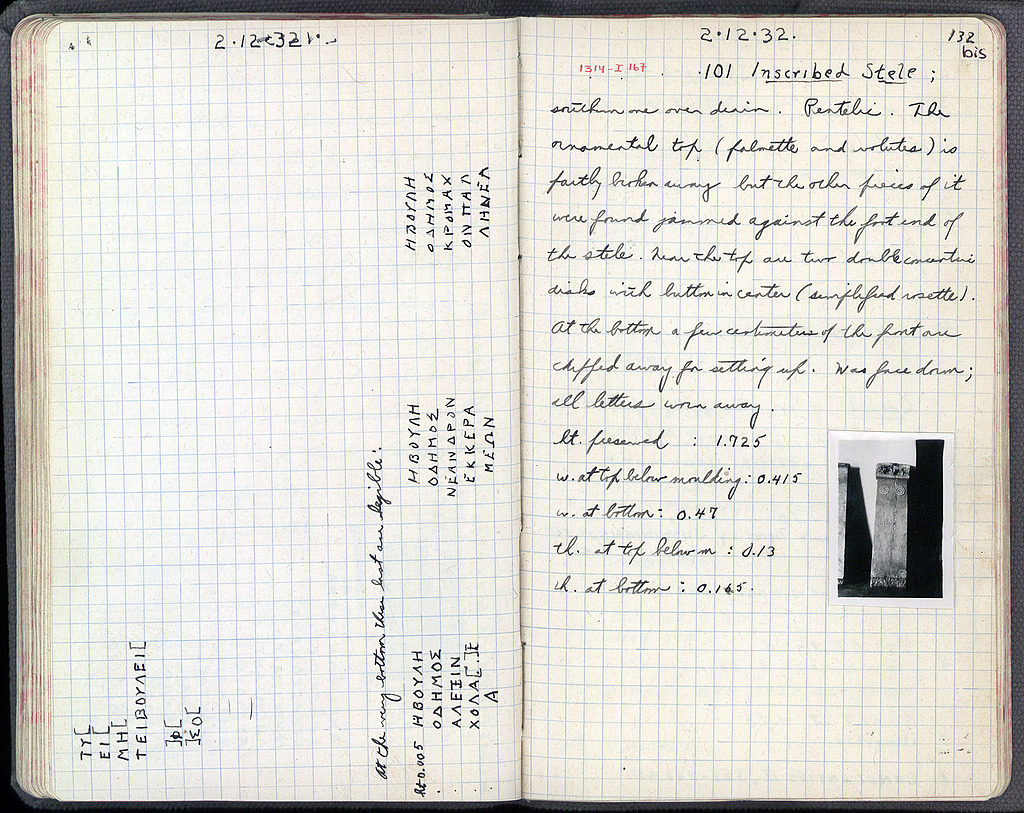 2·12·32
ΤΥ[
ΕΙ[
ΜΗ[
ΤΕΙΒΟΥΛΕΙ[
]Φ[
]ΣΟ[
At the very bottom these last are legible:
ht 0.005 ΗΒΟΥΛΗ
ΟΔΗΜΟΣ
ΑΛΕΞΙΝ
ΧΟΛΑ[.]Ε
Α
ΗΒΟΥΛΗ
ΟΔΗΜΟΣ
ΝΕΑΝΔΡΟΝ
ΕΚΚΕΡΑ
ΜΕΩΝ
ΗΒΟΥΛΗ
ΟΔΗΜΟΣ
ΚΡΟΜΑΧ
ΟΝΠΑΛ
ΛΗΝΕΑ
2·12·32.
132
bis
1314-I 167
·101 Inscribed Stele;
southern one over drain. Pentelic. The
ornamental top (palmette and volutes) is
partly broken away but the other pieces of it
were found jammed against the foot end of
the stele. Near the top are two double concentric
disks with button in center (simplified rosette).
At the bottom a few centimeters of the front are
chipped away for setting up. Was face down;
all letters worn away.
ht. preserved : 1.725
w. at top below moulding: 0.415
w. at bottom: 0.47
th. at top below m : 0.13
th. at bottom: 0.165.